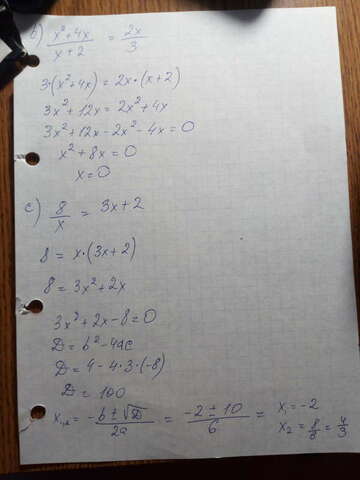 b) (x²+4x)/(x+2) = 2x/3
3·(x²+4x) = 2x·(x+2)
3x²+12x = 2x²+4x
3x²+12x-2x²-4x=0
x²+8x=0
x=0
c) 8/x = 3x+2
8 = x·(3x+2)
8 = 3x²+2x
3x²+2x-8=0
D=b²-4ac
D=4-4·3·(-8)
D=100
x₁,₂ = (-b±√D)/2a = (-2±10)/6 = x₁=-2
x₂=8/6=4/3